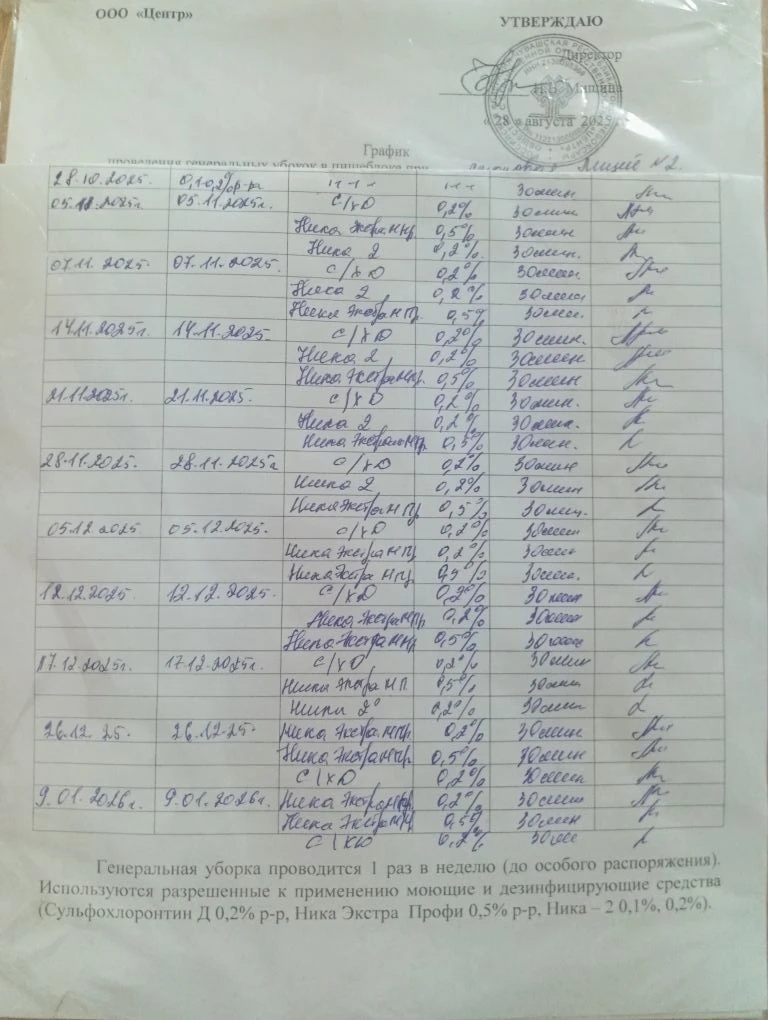 ООО «Центр»
УТВЕРЖДАЮ
Директор
Н.В. Мишина
« 28 » августа 2025 г.
График
проведения генеральных уборок в пищеблоке при Лицей №2.
28.10.2025. 0,1 0,2% р-ра 30мин
05.11.2025г. 05.11.2025г. С/хД 0,2% 30мин
Ника Экстра Н пр. 0,5% 30мин
Ника 2 0,2% 30мин.
07.11.2025. 07.11.2025. С/хД 0,2% 30мин
Ника 2 0,2% 30мин
Ника Экстра Н Пр. 0,5% 30мин.
14.11.2025г. 14.11.2025. С/хД 0,2% 30мин.
Ника 2 0,2% 30мин
Ника Экстра Н пр. 0,5% 30мин
21.11.2025г. 21.11.2025. С/хД 0,2% 30мин.
Ника 2 0,2% 30мин.
Ника Экстра Н Пр. 0,5% 30мин.
28.11.2025. 28.11.2025г С/хД 0,2% 30мин
Ника 2 0,2% 30мин
Ника Экстра Н Пр 0,5% 30мин.
05.12.2025 05.12.2025. С/хД 0,2% 30мин
Ника Экстра Н Пр 0,2% 30мин
Ника Экстра Н Пр. 0,5% 30мин.
12.12.2025. 12.12.2025. С/хД 0,2% 30мин
Ника Экстра Н Пр 0,2% 30мин
Ника Экстра Н пр. 0,5% 30мин
17.12.2025г. 17.12.2025г. С/хД 0,2% 30мин
Ника Экстра Н П. 0,5% 30мин
Ника 2 0,2% 30мин
26.12.25. 26.12.25. Ника Экстра Н пр. 0,2% 30мин
Ника Экстра Н пр. 0,5% 30мин
С/хД 0,2% 30мин
9.01.2026г. 9.01.2026г. Ника Экстра Н пр. 0,2% 30мин
Ника Экстра Н Пр. 0,5% 30мин
С/хД 0,2% 30мин
Генеральная уборка проводится 1 раз в неделю (до особого распоряжения).
Используются разрешенные к применению моющие и дезинфицирующие средства
(Сульфохлоронтин Д 0,2% р-р, Ника Экстра Профи 0,5% р-р, Ника – 2 0,1%, 0,2%).